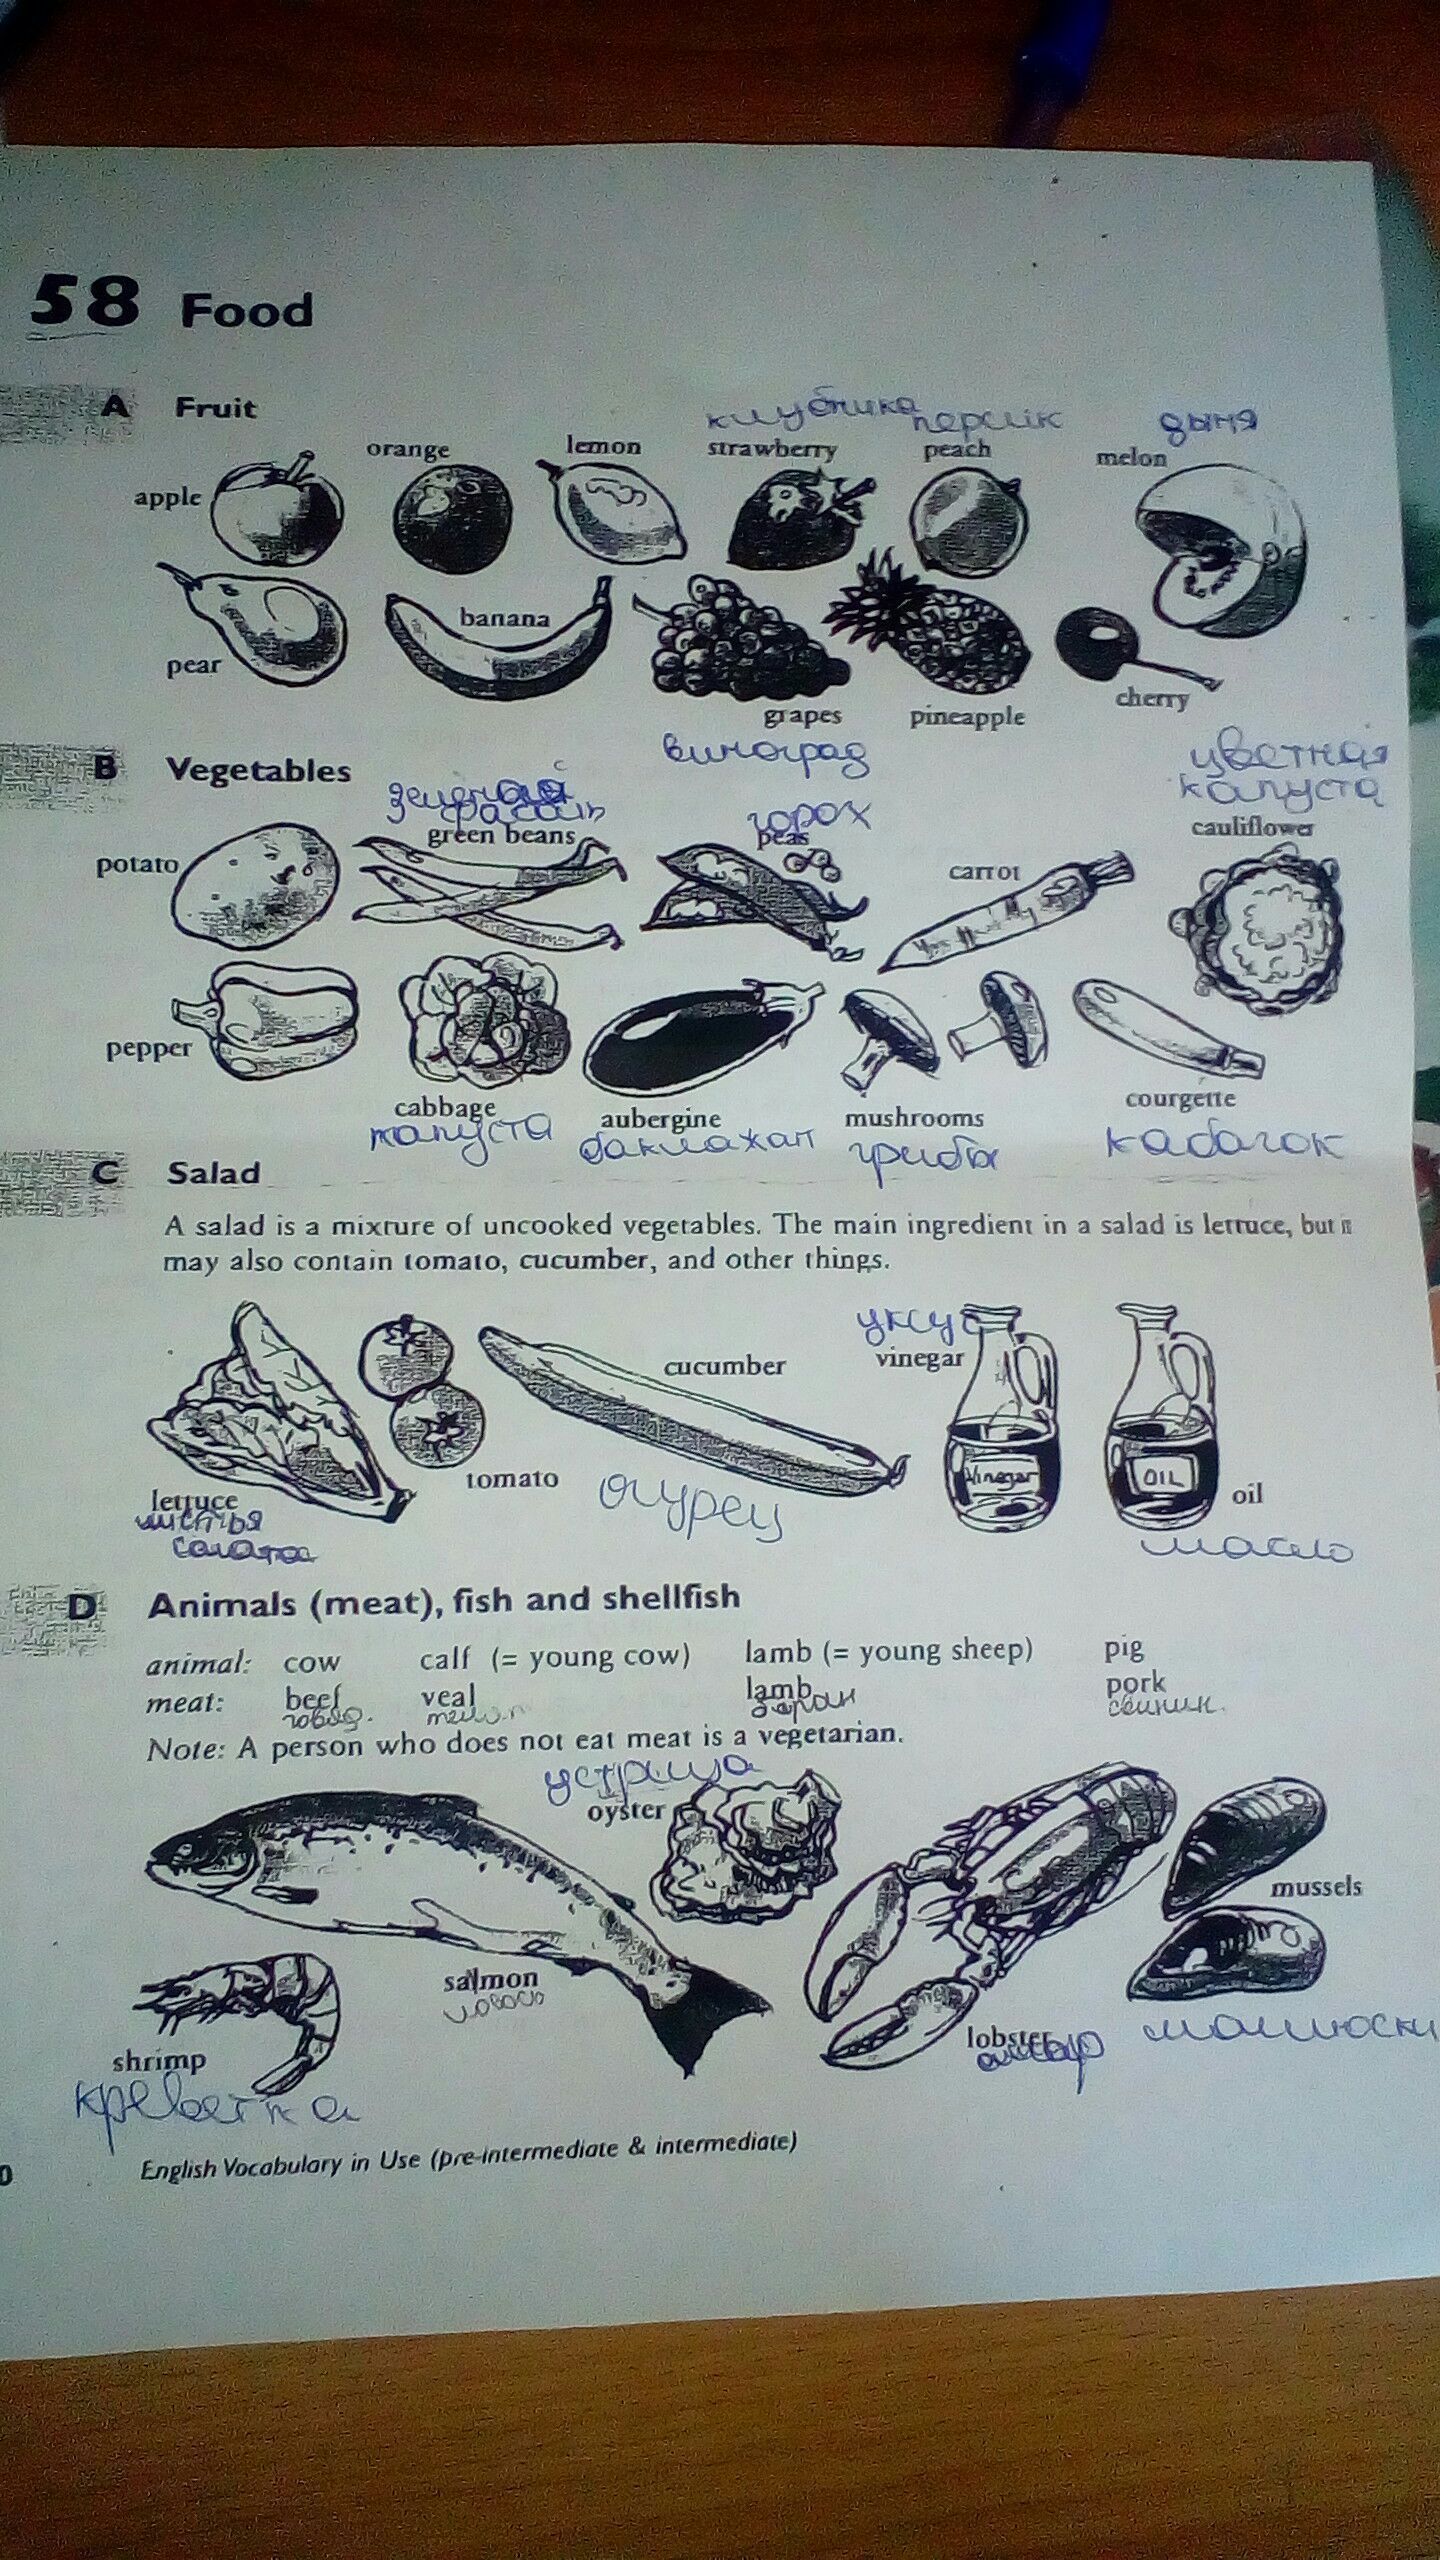 58 Food
A Fruit
клубника персик дыня
orange lemon strawberry peach melon
apple
banana
pear
cherry
grapes pineapple
виноград
цветная
капуста
B Vegetables
зелёная
фасоль
горох
green beans peas cauliflower
potato carrot
pepper
cabbage aubergine mushrooms courgette
капуста баклажан грибы кабачок
C Salad
A salad is a mixture of uncooked vegetables. The main ingredient in a salad is lettuce, but it
may also contain tomato, cucumber, and other things.
уксус
cucumber vinegar
Vinegar OIL
tomato огурец
lettuce oil
листья
салата масло
D Animals (meat), fish and shellfish
animal: cow calf (= young cow) lamb (= young sheep) pig
meat: beef veal lamb pork
говяд. баран свинин.
Note: A person who does not eat meat is a vegetarian.
устрица
oyster
mussels
salmon
лосось
lobster моллюски
shrimp
креветка
English Vocabulary in Use (pre-intermediate & intermediate)